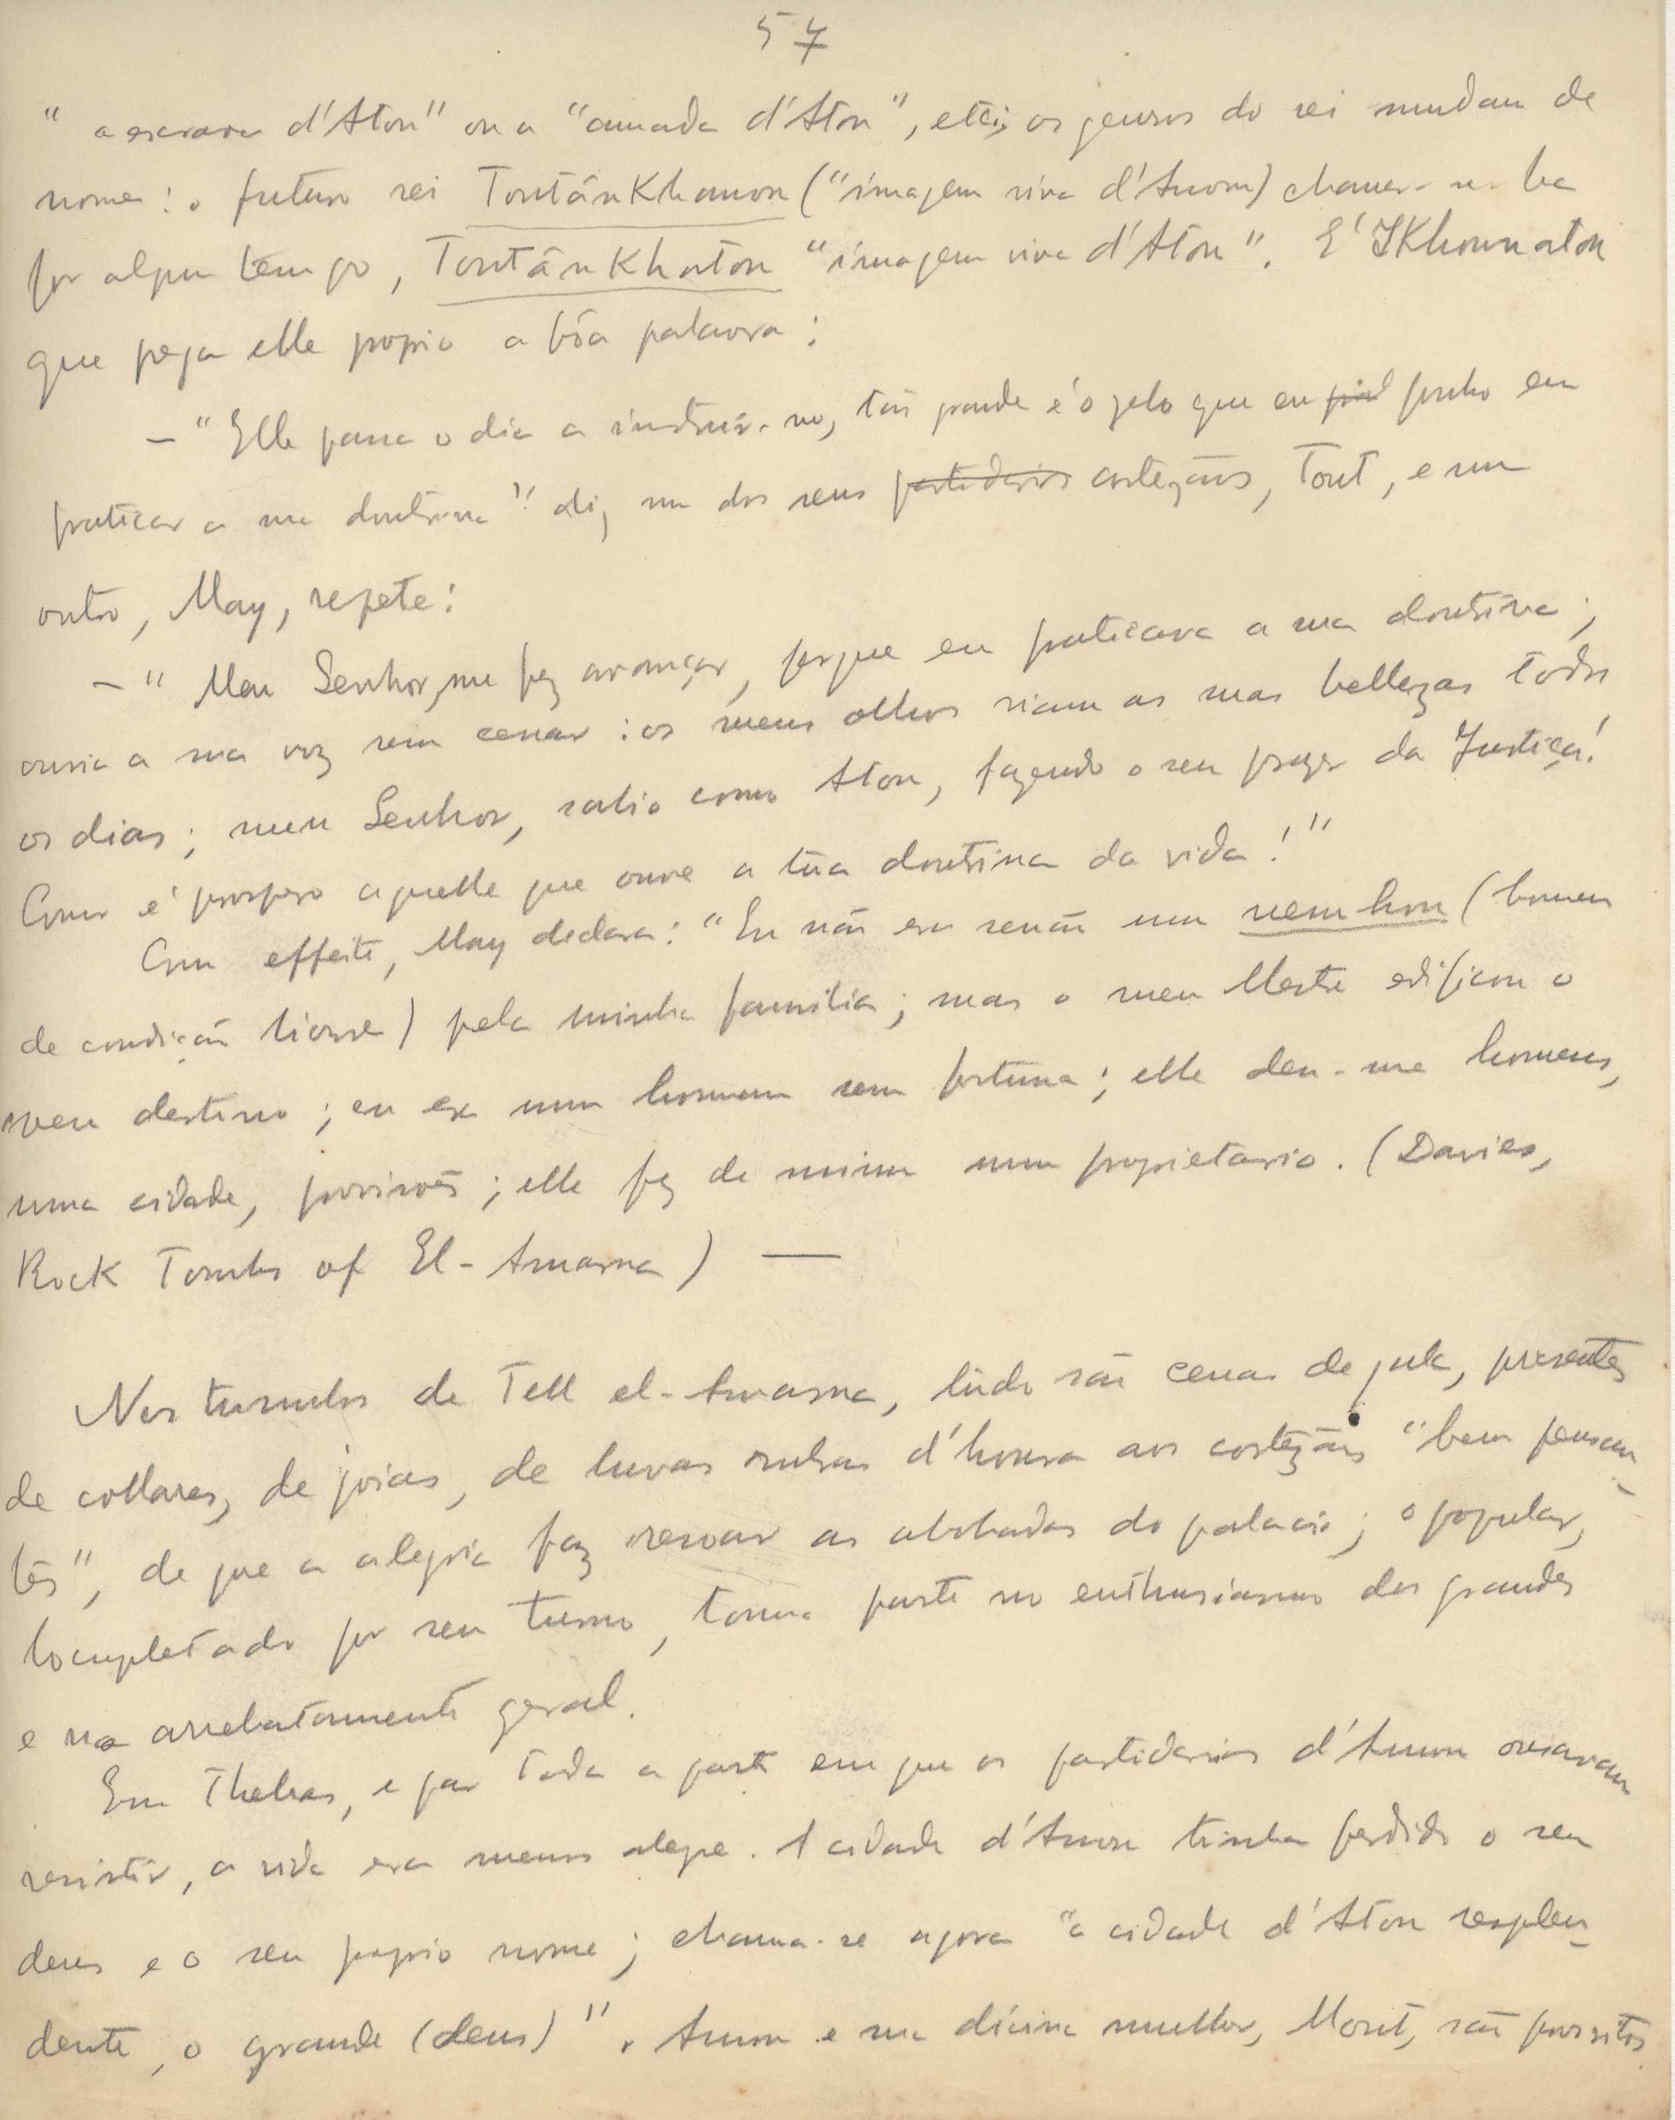 57
"a escrava d'Aton" ou a "amada d'Aton", etc; os genros do rei mudam de
nome: o futuro rei Toutânkhamon ("imagem viva d'Amon) chamar-se-ha
por algum tempo, Toutânkhaton "imagem viva d'Aton". E' Ikhounaton
que prega elle proprio a bôa palavra:
— "Elle passa o dia a instruir-me, tão grande é o zelo que eu ponho em
praticar a sua doutrina" diz um dos seus partidarios cortezãos, Tout, e um
outro, May, repete:
— "Meu Senhor, me fez avançar, porque eu praticava a sua doutrina;
ouvia a sua voz sem cessar: os meus olhos viam as suas bellezas todos
os dias; meu Senhor, sabio como Aton, fazendo o seu prazer da Justiça!
Como é prospero aquelle que ouve a tua doutrina da vida!"
Com effeito, May declara: "Eu não era senão um nemhou (homem
de condição livre) pela minha familia; mas o meu Mestre edificou o
meu destino; eu era um homem sem fortuna; elle deu-me homens,
uma cidade, provisões; elle fez de mim um proprietario. (Davies,
Rock Tombs of El-Amarna) —
Nos tumulos de Tell el-Amarna, tudo são cenas de gala, presentes
de collares, de joias, de luvas rubras d'honra aos cortezãos "bem pensan-
tes", de que a alegria faz resoar as abobadas do palacio; o popular,
locupletado por seu turno, toma parte no enthusiasmo dos grandes
e no arrebatamento geral.
Em Thebas, e por toda a parte em que os partidarios d'Amon ousavam
resistir, a vida era menos alegre. A cidade d'Amon tinha perdido o seu
deus e o seu proprio nome; chama-se agora "a cidade d'Aton resplen-
dente, o grande (deus)". Amon e sua divina mulher, Mout, são proscritos